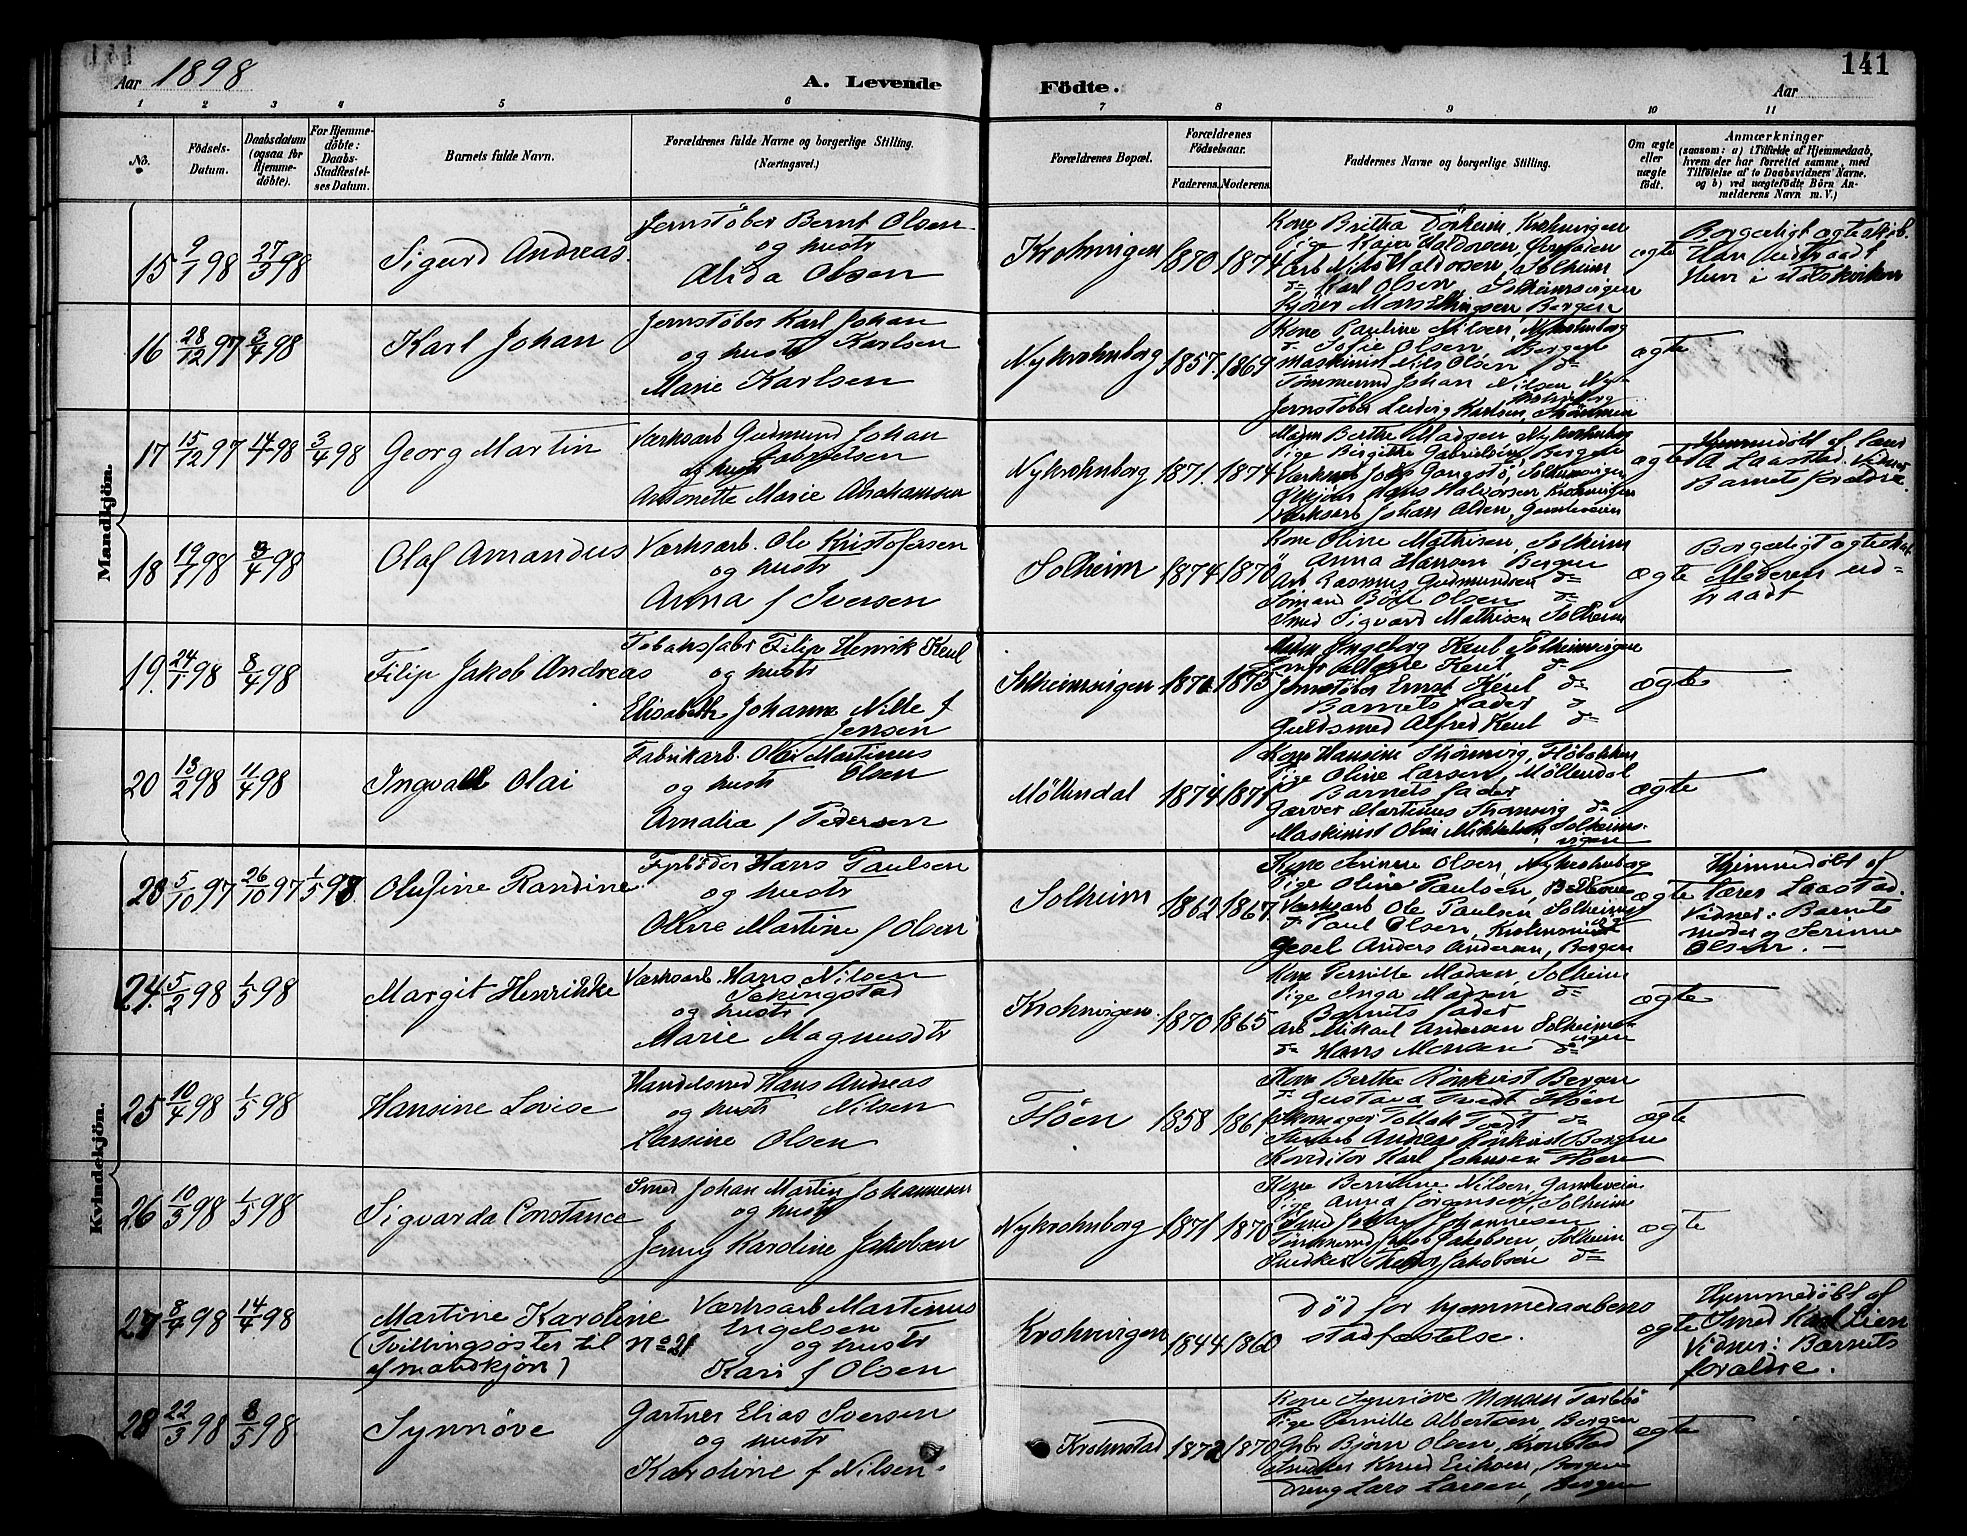 Aar 1898
A. Levende
Födte.
Aar
141
1 2 3 4 5 6 7 8 9 10 11
No.
Födsels-
Datum.
Daabsdatum
(ogsaa for
Hjemme-
döbte).
For Hjemme-
döbte:
Daabs-
Stadfæstel-
ses Datum.
Barnets fulde Navn.
Forældrenes fulde Navne og borgerlige Stilling.
(Næringsvei.)
Forældrenes Bopæl.
Forældrenes
Födselsaar.
Faderens. Moderens.
Faddernes Navne og borgerlige Stilling.
Om ægte
eller
uægte
født.
Anmærkninger
(saasom: a) i Tilfælde af Hjemmedaab,
hvem der har forrettet samme, med
Tilföielse af to Daabsvidners Navne,
og b) ved uægtefödte Börn An-
melderens Navn m. V.)
Mandkjön.
15 9/1 98 27/3 98
Sigurd Andreas
Jernstöber Bernt Olsen
og hustr
Alida Olsen
Krohnvigen 1870 1874
Kone Britha Dönheim, Krohnvigen
Pige Kaja Haldorsen,
Arb Nils Haldorsen, Solheim
do Karl Olsen, Solheimsvigen
ægte
Borgerligt ægteskab.
Han Udtraadt
Hun i statskirken
16 28/12 97 3/4 98
Karl Johan
Jernstöber Karl Johan
og hustr Karlsen
Marie Karlsen
Nykrohnborg 1857 1869
Kone Pauline Nilsen, Nykrohnborg
do Sofie Olsen, Bergen
Maskinist Nils Olsen do
Tömmermd Johan Nilsen, Ny-
krohnborg
Jernstöber Ludvig Karlsen,
ægte
17 15/12 97 14/1 98 3/4 98
Georg Martin
Værksarb Gudmund Johan
og hustr Gabrielsen
Antonette Marie Abrahamsen
Nykrohnborg 1871 1874
Madm Berthe Madsen, Nykrohnborg
Pige Bergitte Gabrielsen, Bergen
Hans Halvorsen Krohnvigen
Værksarb Johan Olsen, Gamleveien
ægte
Hjemmedöbt af Lærer
A Laastad. Vidner
Barnets forældre.
18 19/1 98 3/4 98
Olaf Amandus
Værksarb. Ole Kristofersen
og hustr
Anna f Iversen
Solheim 1874 1870
Kone Oline Mathisen, Solheim
Anna Hansen Bergen
Arb Rasmus Gudmundsen do
Sömand Olsen do
Smed Sigvard Mathisen Solheim
ægte
Borgerligt ægteskab.
Moderen ud-
traadt
19. 24/1 98 8/4 98
Filip Jakob Andreas
Tobaksfabr Filip Henrik Keul
og hustr
Elisabeth Johanne Nille f
Jensen
Solheimsvigen 1873
Ingeborg Keul Solheimsvigen
Keul do
Jernstöber Ernst Keul do
Barnets fader
Guldsmed Alfred Keul do
ægte
20 13/2 98 11/4 98
Ingvald Olai
Fabrikarb. Olai Martinus
og hustr Olsen
Amalia f Pedersen
Möllendal 1874 1871
Kone Hansine Thönnevig, Flöbakken
Pige Oline Larsen, Möllendal
Barnets fader
Garver Martinus do
Maskinist Olai Mikkelsen, Solheims-
vigen
ægte
Kvindekjön.
23 5/10 97 26/10 97 1/5 98
Olufine Randine
Fyrböder Hans Paulsen
og hustr
Oline Martine f Olsen
Solheim 1862 1867
Kone Serine Olsen, Nykrohnborg
Pige Oline Paulsen,
Værksarb Ole Paulsen, Solheimsv
do Paul Olsen,
Gesel Anders Andersen, Bergen
ægte
Hjemmedöbt af
Lærer Laastad.
Vidner: Barnets
moder og Serine
Olsen.
24. 5/2 98 1/5 98
Margit Henrikke
Værksarb. Hans Nilsen
Sekingstad
og hustr
Marie Magnusdtr
Krohnvigen. 1870 1865
Kone Pernille Madsen, Solheim
Pige Inga Madsen do
Barnets fader
Arb Mikael Andersen Solheims-
vigen
do Hans Monsen do
ægte
25 10/4 98 1/5 98
Hansine Lovise
Handelsmd Hans Andreas
og hustr Nilsen
Larsine Olsen
Flöen 1858 1861
Kone Berthe Rönkvist Bergen
do Gustava Tvedt Flöen
Skomager Tollak Tvedt do
Andreas Rönkvist Bergen
Konditor Karl Johnsen Flöen
ægte
26 10/3 98 1/5 98
Sigvarda Constance
Smed Johan Martin Johannesen
og hustr
Jenny Karoline Jakobsen
Nykrohnborg 1871 1870
Kone Berntine Nilsen, Gamleveien
Pige Anna Jörgensen, Solheim
Smed Johannesen
Tömmermd Jakob Jakobsen, Solheim
Snedker Jakobsen do
ægte
27 8/4 98 14/4 98
Martine Karoline
(Tvillingsöster til no 21
af mandkjön)
Værksarb Martinus
Engelsen
og hustr
Kari f Olsen
Krohnvigen 1844 1860
Död för hjemmedaabens
stadfæstelse.
ægte
Hjemmedöbt af
Smed Karl Lien
Vidner: Barnets
forældre.
28 22/3 98 8/5 98
Synnöve
Gartner Elias Iversen
og hustr
Karoline f Nilsen.
Krohnstad 1872 1870
Kone Synnöve Monsen
Pige Pernille Albertsen, Bergen
Björn Olsen, Kronstad
Snedker Knud Eriksen, Bergen
Dreng Lars Larsen, Bergen
ægte